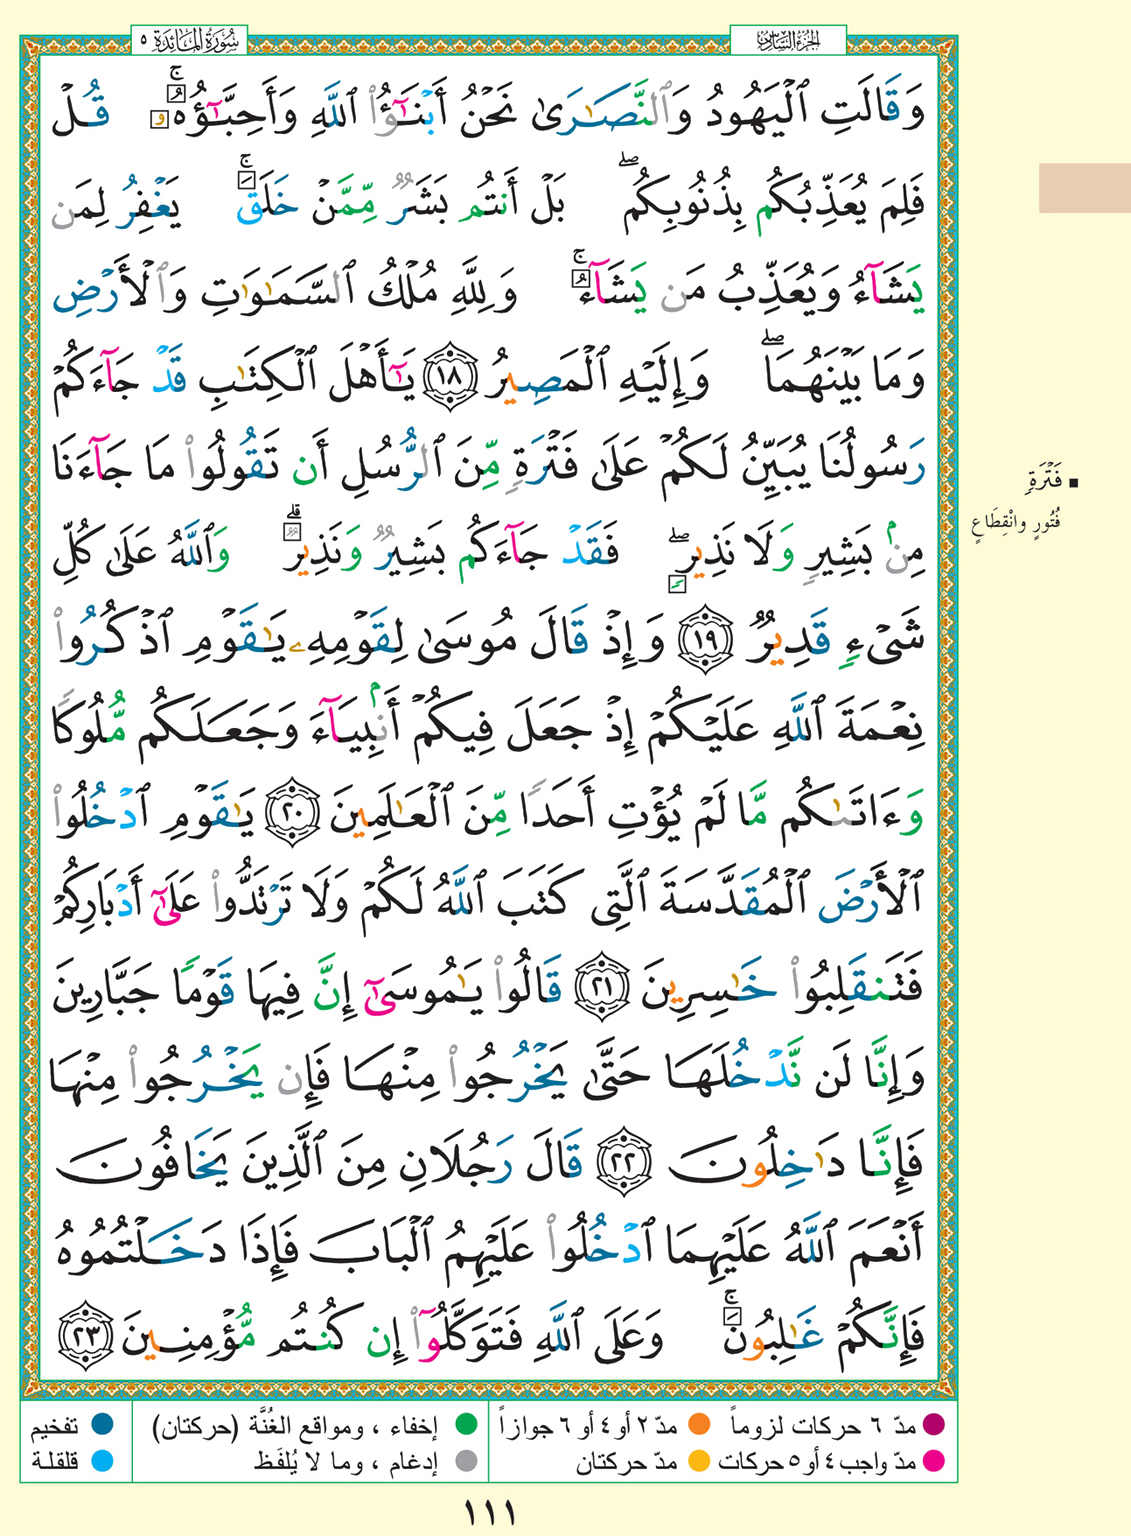 الجزء السادس
سُورَةُ المَائِدَة ٥
وَقَالَتِ ٱلْيَهُودُ وَٱلنَّصَـٰرَىٰ نَحْنُ أَبْنَـٰٓؤُا۟ ٱللَّهِ وَأَحِبَّـٰٓؤُهُۥ ۚ قُلْ
فَلِمَ يُعَذِّبُكُم بِذُنُوبِكُم ۖ بَلْ أَنتُم بَشَرٌ مِّمَّنْ خَلَقَ ۚ يَغْفِرُ لِمَن
يَشَآءُ وَيُعَذِّبُ مَن يَشَآءُ ۚ وَلِلَّهِ مُلْكُ ٱلسَّمَـٰوَٰتِ وَٱلْأَرْضِ
وَمَا بَيْنَهُمَا ۖ وَإِلَيْهِ ٱلْمَصِيرُ ١٨ يَـٰٓأَهْلَ ٱلْكِتَـٰبِ قَدْ جَآءَكُمْ
رَسُولُنَا يُبَيِّنُ لَكُمْ عَلَىٰ فَتْرَةٍ مِّنَ ٱلرُّسُلِ أَن تَقُولُوا۟ مَا جَآءَنَا
مِنۢ بَشِيرٍ وَلَا نَذِيرٍ ۖ فَقَدْ جَآءَكُم بَشِيرٌ وَنَذِيرٌ ۗ وَٱللَّهُ عَلَىٰ كُلِّ
شَىْءٍ قَدِيرٌ ١٩ وَإِذْ قَالَ مُوسَىٰ لِقَوْمِهِۦ يَـٰقَوْمِ ٱذْكُرُوا۟
نِعْمَةَ ٱللَّهِ عَلَيْكُمْ إِذْ جَعَلَ فِيكُمْ أَنۢبِيَآءَ وَجَعَلَكُم مُّلُوكًا
وَءَاتَىٰكُم مَّا لَمْ يُؤْتِ أَحَدًا مِّنَ ٱلْعَـٰلَمِينَ ٢٠ يَـٰقَوْمِ ٱدْخُلُوا۟
ٱلْأَرْضَ ٱلْمُقَدَّسَةَ ٱلَّتِى كَتَبَ ٱللَّهُ لَكُمْ وَلَا تَرْتَدُّوا۟ عَلَىٰٓ أَدْبَارِكُمْ
فَتَنقَلِبُوا۟ خَـٰسِرِينَ ٢١ قَالُوا۟ يَـٰمُوسَىٰٓ إِنَّ فِيهَا قَوْمًا جَبَّارِينَ
وَإِنَّا لَن نَّدْخُلَهَا حَتَّىٰ يَخْرُجُوا۟ مِنْهَا فَإِن يَخْرُجُوا۟ مِنْهَا
فَإِنَّا دَٰخِلُونَ ٢٢ قَالَ رَجُلَانِ مِنَ ٱلَّذِينَ يَخَافُونَ
أَنْعَمَ ٱللَّهُ عَلَيْهِمَا ٱدْخُلُوا۟ عَلَيْهِمُ ٱلْبَابَ فَإِذَا دَخَلْتُمُوهُ
فَإِنَّكُمْ غَـٰلِبُونَ ۚ وَعَلَى ٱللَّهِ فَتَوَكَّلُوٓا۟ إِن كُنتُم مُّؤْمِنِينَ ٢٣
▪ فَتْرَةٍ
فُتُورٍ وانْقِطَاعٍ
مدّ ٦ حركات لزوماً مدّ ٢ أو ٤ أو ٦ جوازاً إخفاء ، ومواقع الغُنَّة (حركتان) تفخيم
مدّ واجب ٤ أو ٥ حركات مدّ حركتان إدغام ، وما لا يُلفَظ قلقلة
١١١